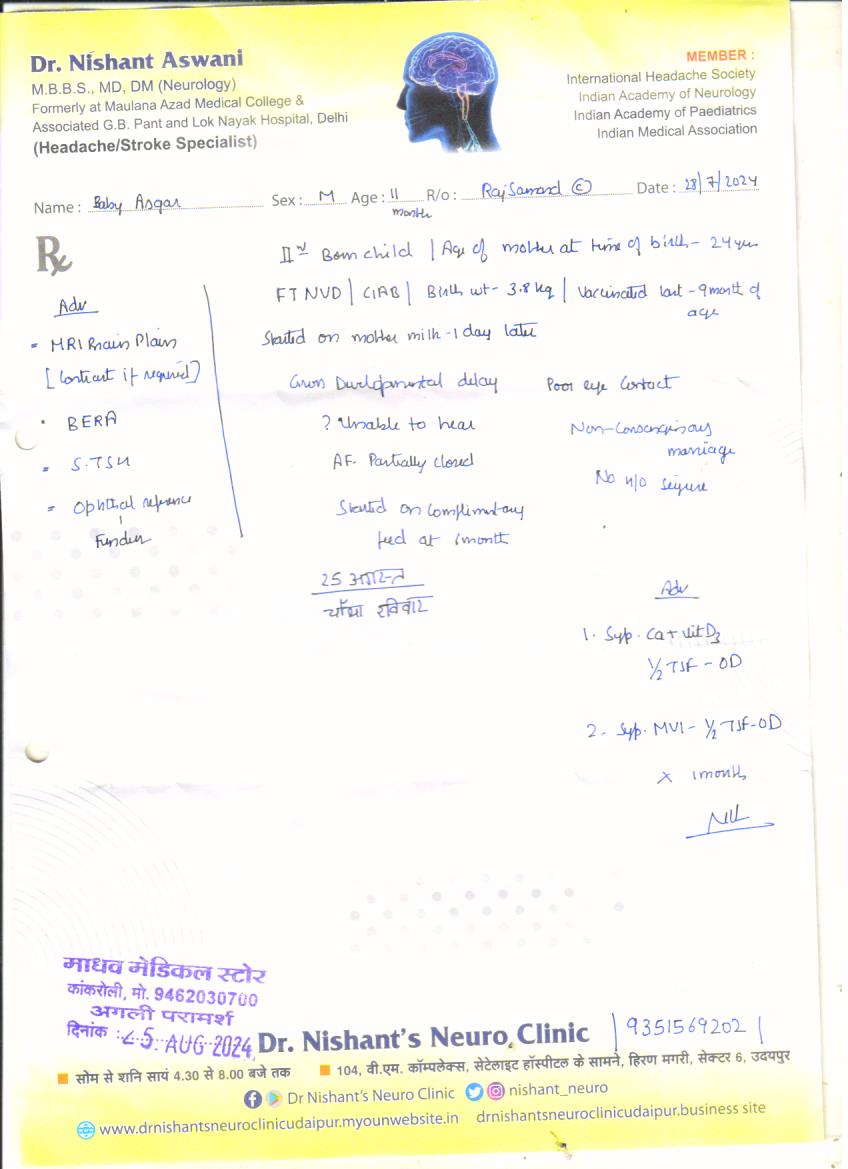 Dr. Nishant Aswani
M.B.B.S., MD, DM (Neurology)
Formerly at Maulana Azad Medical College &
Associated G.B. Pant and Lok Nayak Hospital, Delhi
(Headache/Stroke Specialist)
MEMBER :
International Headache Society
Indian Academy of Neurology
Indian Academy of Paediatrics
Indian Medical Association
Name : Baby Asgar Sex : M Age : 11 month R/o : RajSamand © Date : 28/7/2024
Rx
IInd Born child | Age of mother at time of birth - 24 yrs
FTNVD | CIAB | Birth wt - 3.8 kg | Vaccinated last - 9 month of
age
Started on mother milk - 1 day later
Developmental delay
Poor eye contact
? Unable to hear
marriage
AF. Partially closed
No H/o seizure
Started on Complimentary
feed at month
25 अगस्त
चौथा रविवार
Adv
= MRI Brain Plain
[Contrast if required]
• BERA
= S.TSH
= Opthal
Fundus
Adv
1. Syp. Ca + Vit D3
1/2 TSF - OD
2. Syp. MVI - 1/2 TSF - OD
x 1 month
माधव मेडिकल स्टोर
कांकरोली, मो. 9462030700
अगली परामर्श
दिनांक : 25 AUG 2024
Dr. Nishant's Neuro Clinic | 9351569202 |
सोम से शनि सायं 4.30 से 8.00 बजे तक
104, वी.एम. कॉम्पलेक्स, सेटेलाइट हॉस्पीटल के सामने, हिरण मगरी, सेक्टर 6, उदयपुर
Dr Nishant's Neuro Clinic nishant_neuro
www.drnishantsneuroclinicudaipur.myounwebsite.in drnishantsneuroclinicudaipur.business site